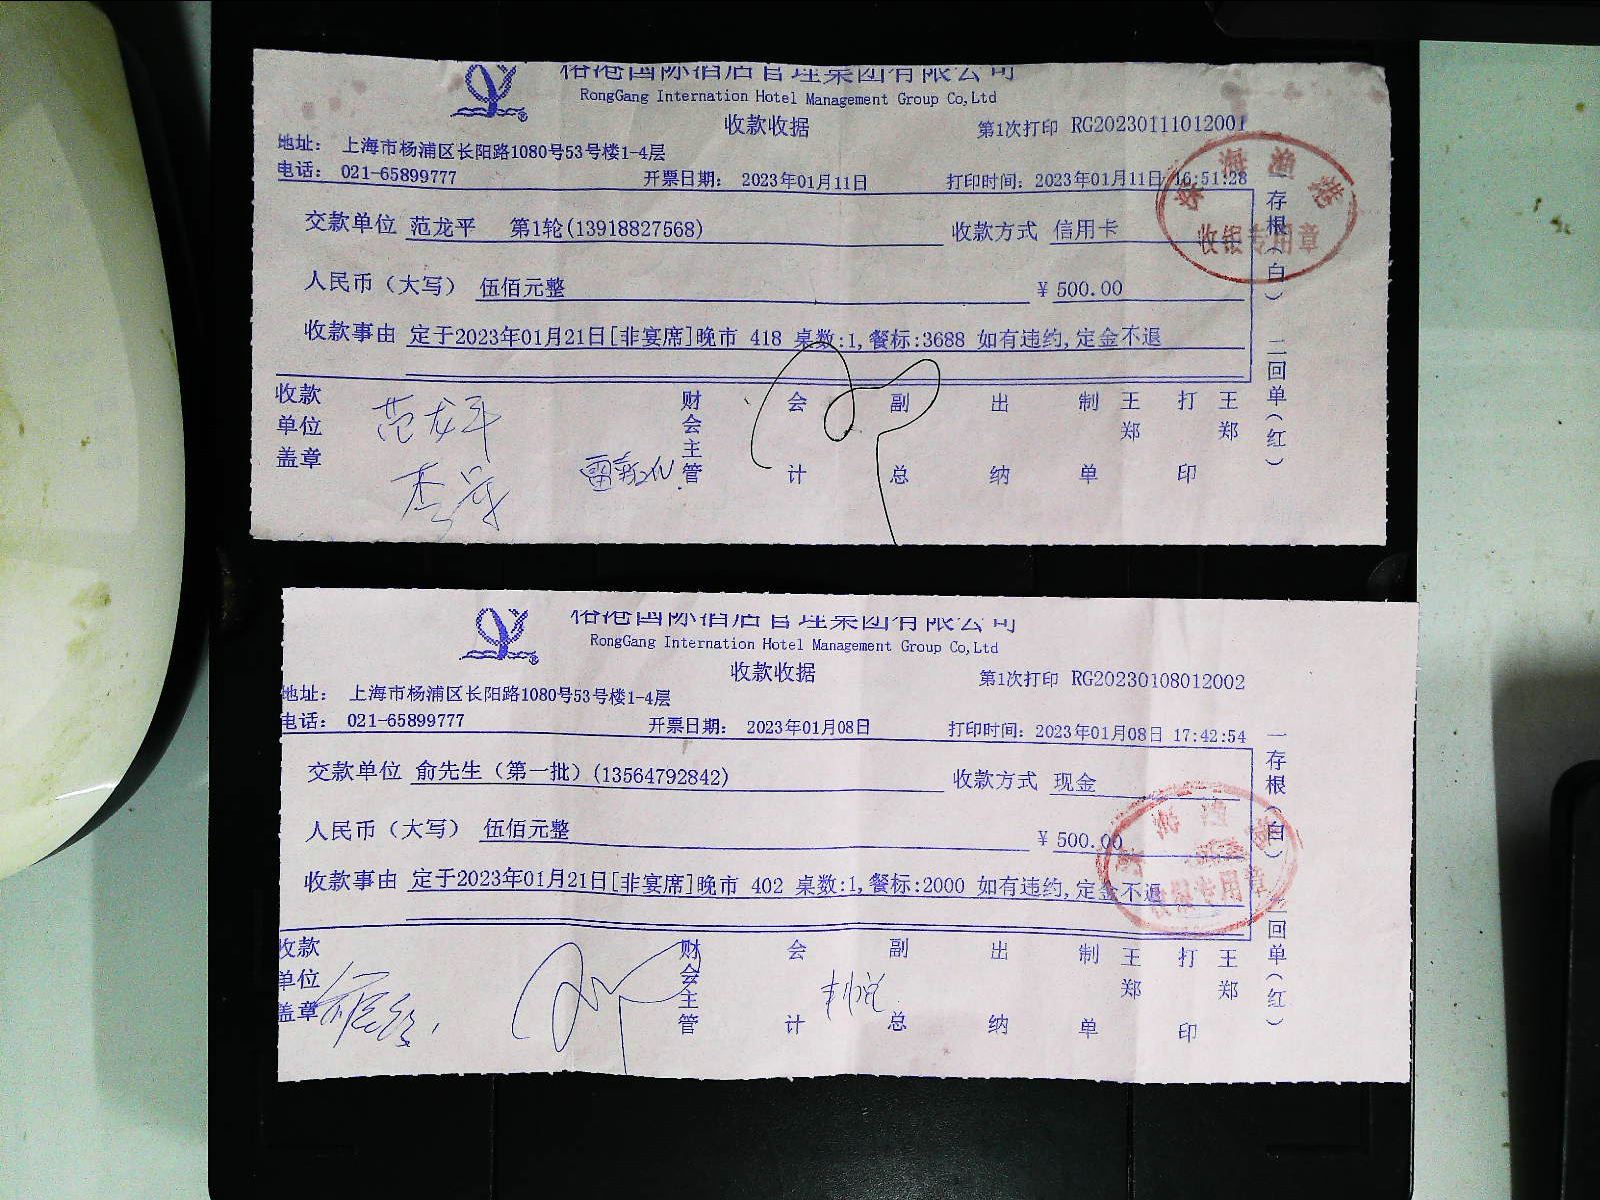 榕港国际酒店管理集团有限公司
RongGang Internation Hotel Management Group Co,Ltd
收款收据
第1次打印 RG20230111012001
地址： 上海市杨浦区长阳路1080号53号楼1-4层
电话： 021-65899777 开票日期： 2023年01月11日 打印时间：2023年01月11日 16:51:28
交款单位 范龙平 第1轮(13918827568) 收款方式 信用卡
人民币（大写） 伍佰元整 ￥500.00
收款事由 定于2023年01月21日[非宴席]晚市 418 桌数:1,餐标:3688 如有违约,定金不退
收款单位盖章 范龙平
财会主管 会计 副总 出纳 制单 王郑 打印 王郑
一存根（白） 二回单（红）
海渔港
收银专用章
榕港国际酒店管理集团有限公司
RongGang Internation Hotel Management Group Co,Ltd
收款收据
第1次打印 RG20230108012002
地址： 上海市杨浦区长阳路1080号53号楼1-4层
电话： 021-65899777 开票日期： 2023年01月08日 打印时间：2023年01月08日 17:42:54
交款单位 俞先生（第一批）(13564792842) 收款方式 现金
人民币（大写） 伍佰元整 ￥500.00
收款事由 定于2023年01月21日[非宴席]晚市 402 桌数:1,餐标:2000 如有违约,定金不退
收款单位盖章
财会主管 会计 副总 出纳 制单 王郑 打印 王郑
一存根（白） 二回单（红）
收银专用章